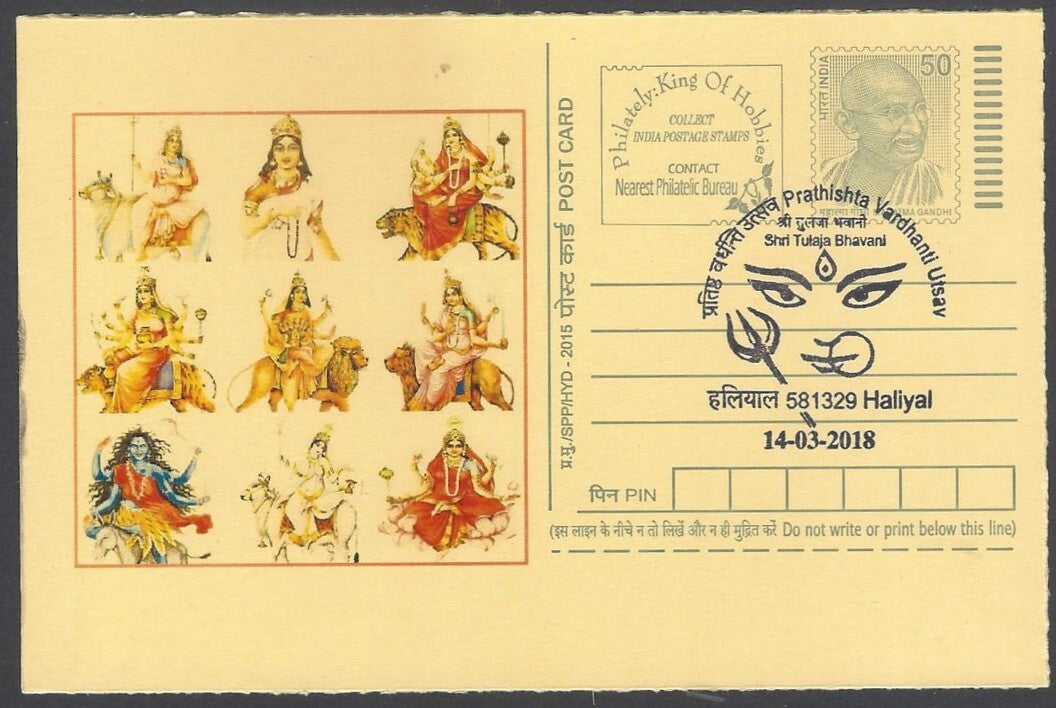 Philately:King Of Hobbies
COLLECT
INDIA POSTAGE STAMPS
CONTACT
Nearest Philatelic Bureau
भारत INDIA
50
महात्मा गांधी MAHATMA GANDHI
प्रतिष्ठ वर्धन्ति उत्सव Prathishta Vardhanti Utsav
श्री तुलजा भवानी
Shri Tulaja Bhavani
हलियाल 581329 Haliyal
14-03-2018
प्र.मु./SPP/HYD - 2015 पोस्ट कार्ड POST CARD
पिन PIN
(इस लाइन के नीचे न तो लिखें और न ही मुद्रित करें Do not write or print below this line)